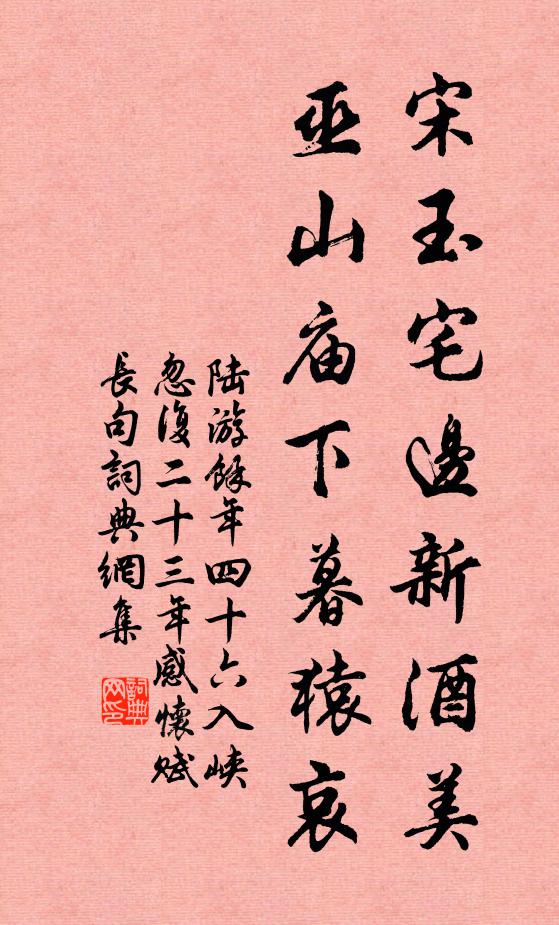 宋玉宅邊新酒美
巫山庙下暮猿哀
陆游餘年四十六入峡
忽復二十三年感懷赋
長句詞典網集
詞典
网印